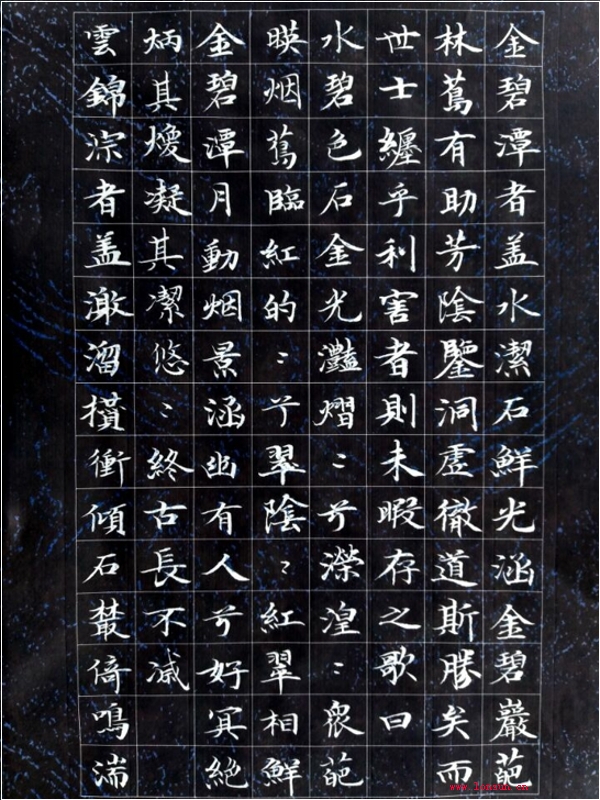 金碧潭者盖水潔石鮮光涵金碧巖葩
林蔦有助芳陰鑒洞虛徹道斯勝矣而
世士纏乎利害者則未暇存之歌曰
水碧色石金光灩熠〻兮濚湟〻泉葩
暎烟蔦臨紅的〻兮翠陰〻紅翠相鮮
金碧潭月動烟景涵幽有人兮好冥絕
炳其煖凝其潔悠〻終古長不滅
雲錦淙者盖激溜攢衝傾石叢倚鳴湍